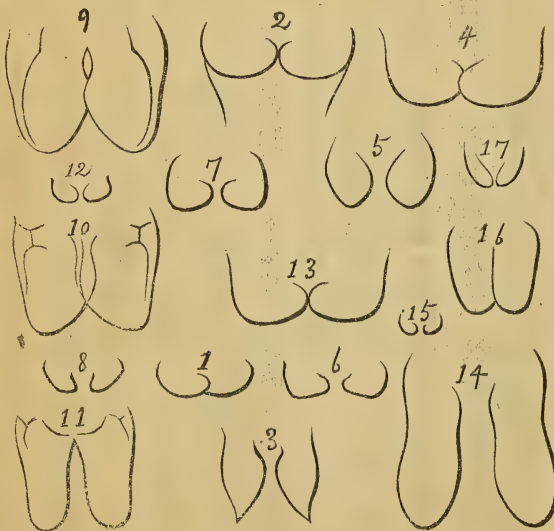 9 2 4
12 7 5 17
10 13 16
15
8 1 6 14
11 3